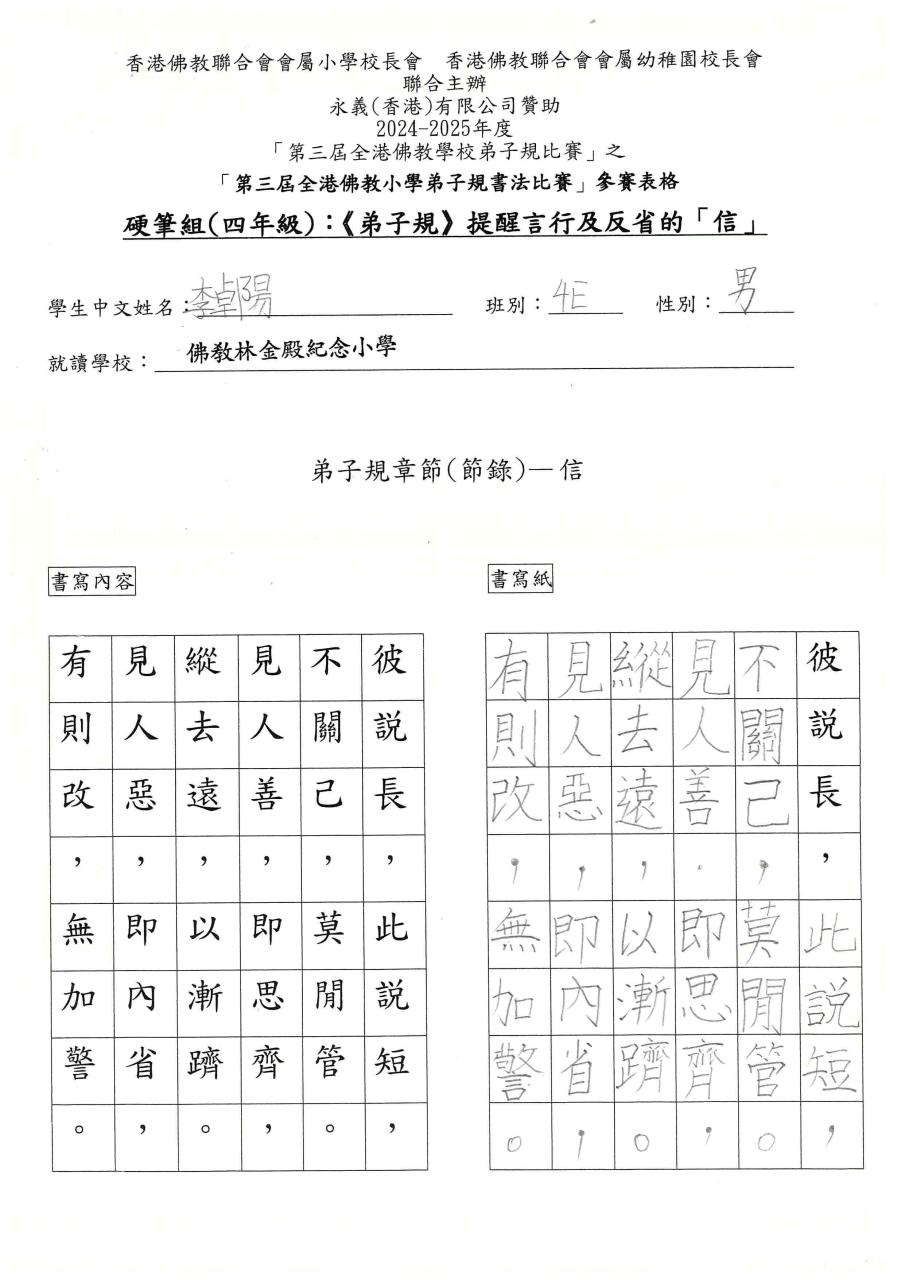 香港佛教聯合會會屬小學校長會　香港佛教聯合會會屬幼稚園校長會
聯合主辦
永義(香港)有限公司贊助
2024-2025年度
「第三屆全港佛教學校弟子規比賽」之
「第三屆全港佛教小學弟子規書法比賽」參賽表格
硬筆組(四年級)：《弟子規》提醒言行及反省的「信」
學生中文姓名：李卓陽　班別：4E　性別：男
就讀學校：佛教林金殿紀念小學
弟子規章節(節錄)—信
書寫內容
彼說長，此說短，
不關己，莫閒管。
見人善，即思齊，
縱去遠，以漸躋。
見人惡，即內省，
有則改，無加警。
書寫紙
彼說長，此說短，
不關己，莫閒管。
見人善，即思齊，
縱去遠，以漸躋。
見人惡，即內省，
有則改，無加警。